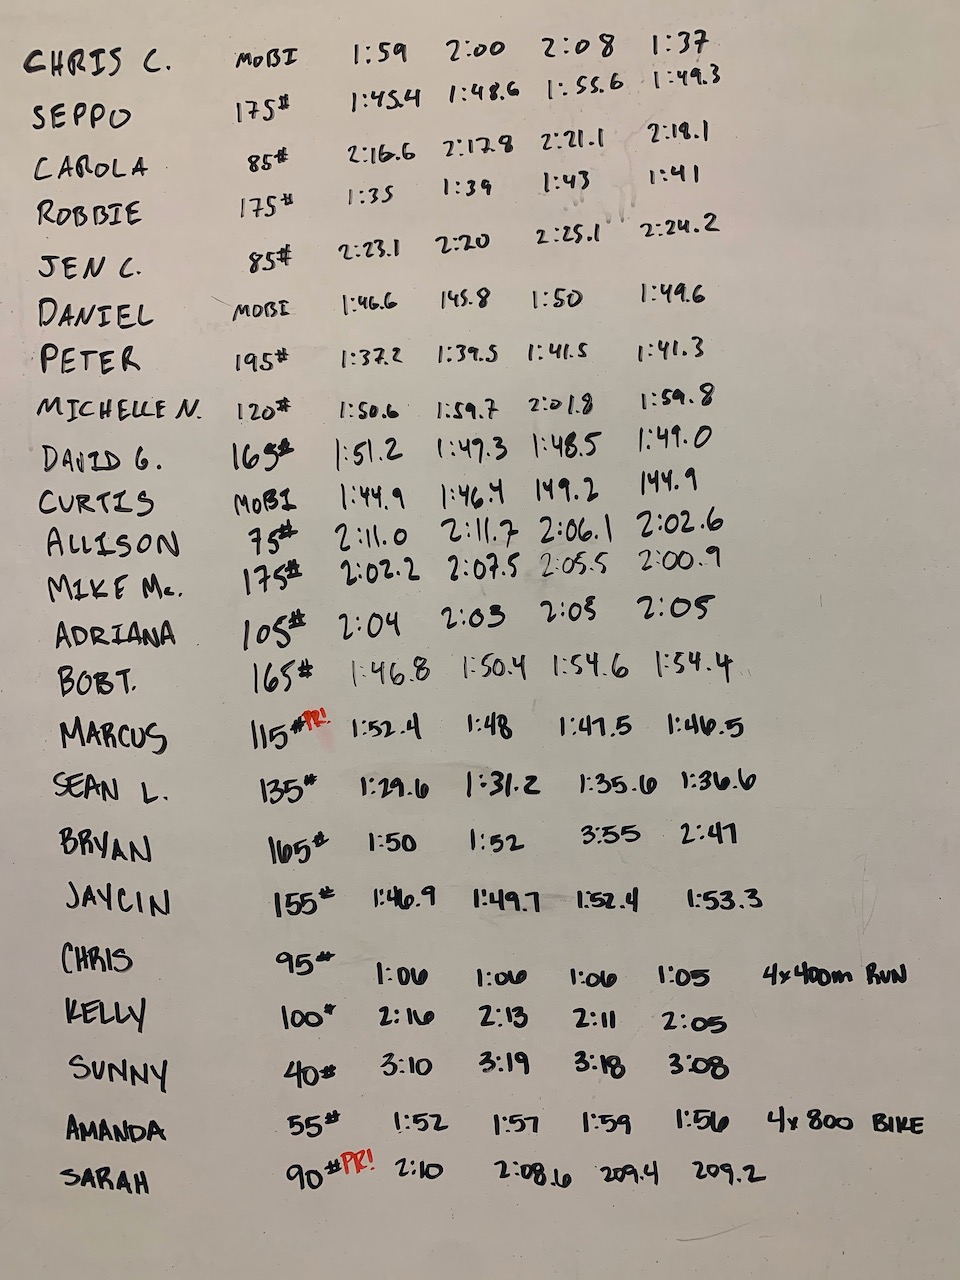 CHRIS C. MOBI 1:59 2:00 2:08 1:37
SEPPO 175# 1:45.4 1:48.6 1:55.6 1:49.3
CAROLA 85# 2:16.6 2:17.8 2:21.1 2:18.1
ROBBIE 175# 1:35 1:39 1:43 1:41
JEN C. 85# 2:23.1 2:20 2:25.1 2:24.2
DANIEL MOBI 1:46.6 145.8 1:50 1:49.6
PETER 195# 1:37.2 1:39.5 1:41.5 1:41.3
MICHELLE N. 120# 1:50.6 1:59.7 2:01.8 1:59.8
DAVID G. 165# 1:51.2 1:49.3 1:48.5 1:49.0
CURTIS MOBI 1:44.9 1:46.4 149.2 144.9
ALLISON 75# 2:11.0 2:11.7 2:06.1 2:02.6
MIKE Mc. 175# 2:02.2 2:07.5 2:05.5 2:00.9
ADRIANA 105# 2:04 2:03 2:05 2:05
BOB T. 165# 1:46.8 1:50.4 1:54.6 1:54.4
MARCUS 115# PR! 1:52.4 1:48 1:47.5 1:46.5
SEAN L. 135# 1:29.6 1:31.2 1:35.6 1:36.6
BRYAN 165# 1:50 1:52 3:55 2:47
JAYCIN 155# 1:46.9 1:49.7 1:52.4 1:53.3
CHRIS 95# 1:06 1:06 1:06 1:05 4x400m RUN
KELLY 100# 2:16 2:13 2:11 2:05
SUNNY 40# 3:10 3:19 3:18 3:08
AMANDA 55# 1:52 1:57 1:59 1:56 4x800 BIKE
SARAH 90# PR! 2:10 2:08.6 209.4 209.2